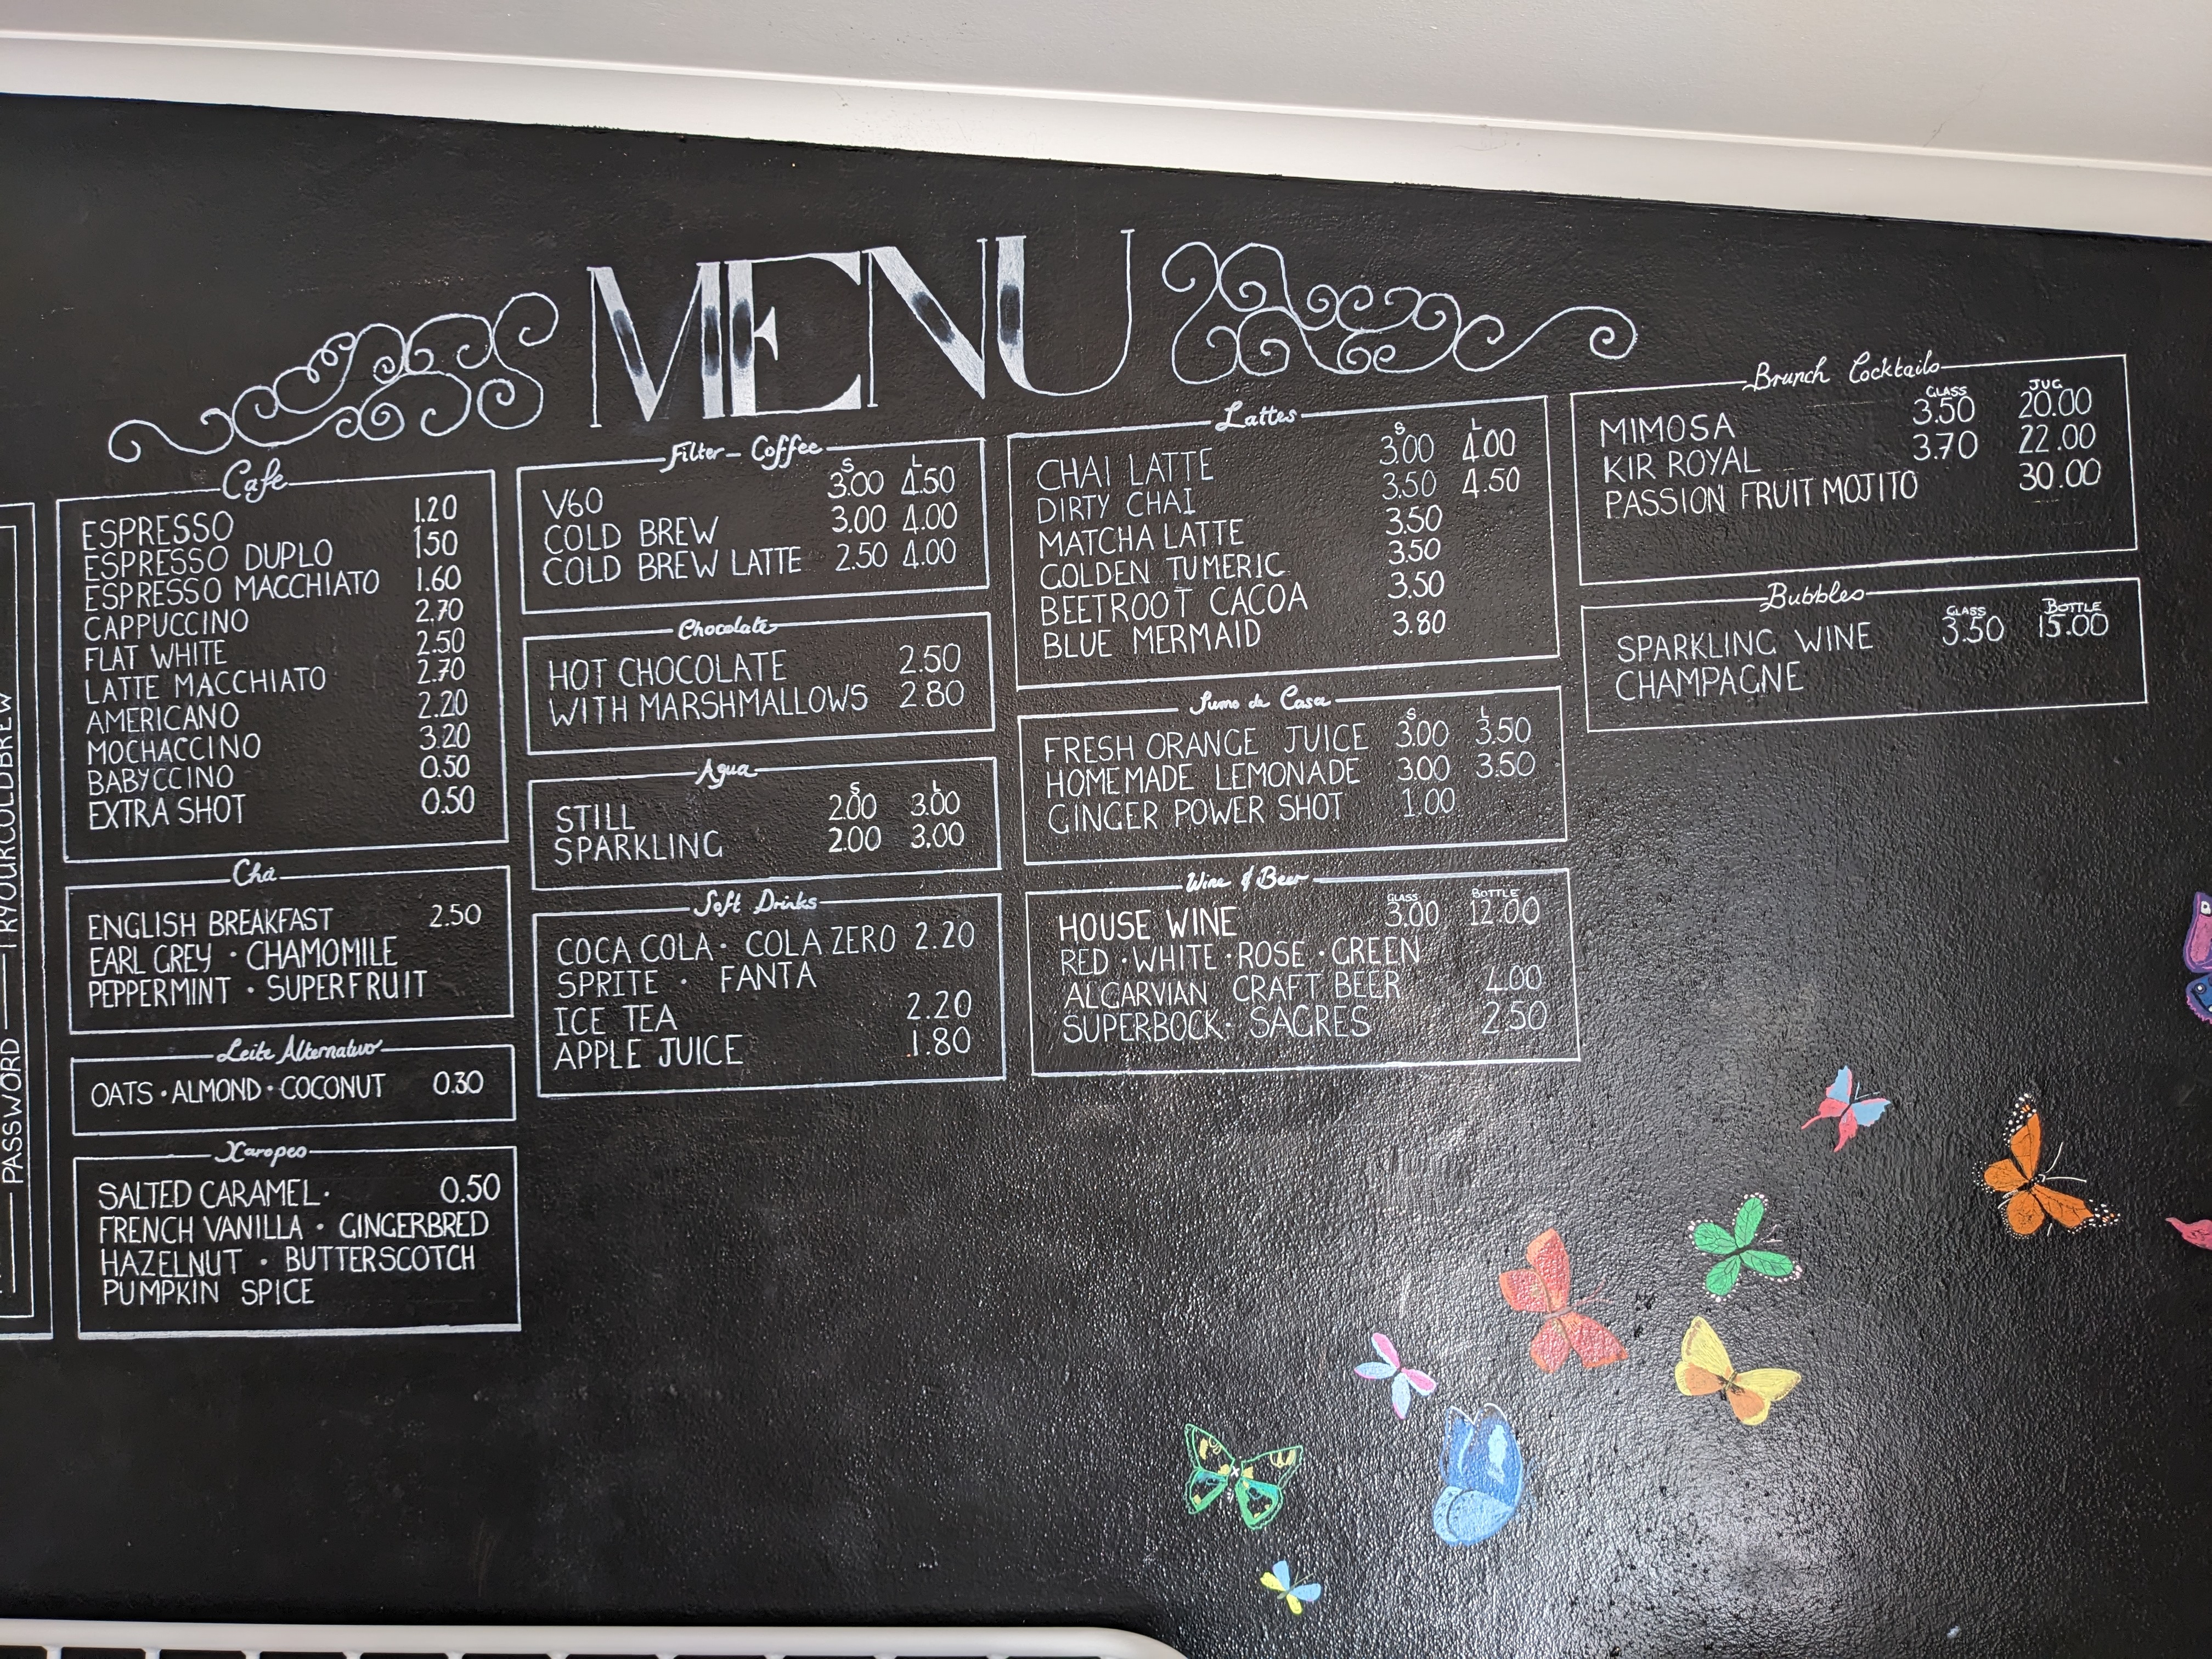 MENU
Cafe
ESPRESSO 1.20
ESPRESSO DUPLO 150
ESPRESSO MACCHIATO 1.60
CAPPUCCINO 2.70
FLAT WHITE 2.50
LATTE MACCHIATO 2.70
AMERICANO 2.20
MOCHACCINO 3.20
BABYCCINO 0.50
EXTRA SHOT 0.50
Cha
ENGLISH BREAKFAST 2.50
EARL GREY · CHAMOMILE
PEPPERMINT · SUPERFRUIT
Leite Alternativo
OATS · ALMOND · COCONUT 0.30
Xaropes
SALTED CARAMEL · 0.50
FRENCH VANILLA · GINGERBRED
HAZELNUT · BUTTERSCOTCH
PUMPKIN SPICE
Filter - Coffee
S L
V60 3.00 4.50
COLD BREW 3.00 4.00
COLD BREW LATTE 2.50 4.00
Chocolate
HOT CHOCOLATE 2.50
WITH MARSHMALLOWS 2.80
Agua
S L
STILL 2.00 3.00
SPARKLING 2.00 3.00
Soft Drinks
COCA COLA · COLA ZERO 2.20
SPRITE · FANTA
ICE TEA 2.20
APPLE JUICE 1.80
Lattes
S L
CHAI LATTE 3.00 4.00
DIRTY CHAI 3.50 4.50
MATCHA LATTE 3.50
GOLDEN TUMERIC 3.50
BEETROOT CACOA 3.50
BLUE MERMAID 3.80
Sumo de Casa
S L
FRESH ORANGE JUICE 3.00 3.50
HOMEMADE LEMONADE 3.00 3.50
GINGER POWER SHOT 1.00
Wine & Beer
GLASS BOTTLE
HOUSE WINE 3.00 12.00
RED · WHITE · ROSE · GREEN
ALGARVIAN CRAFT BEER 4.00
SUPERBOCK · SAGRES 2.50
Brunch Cocktails
GLASS JUG
MIMOSA 3.50 20.00
KIR ROYAL 3.70 22.00
PASSION FRUIT MOJITO 30.00
Bubbles
GLASS BOTTLE
SPARKLING WINE 3.50 15.00
CHAMPAGNE
PASSWORD TRYOURCOLDBREW